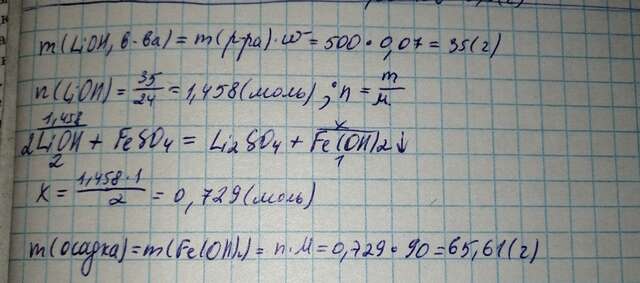 m(LiOH, в-ва) = m(р-ра)·w = 500·0,07 = 35(г)
n(LiOH) = 35/24 = 1,458(моль); n = m/M
1,458 x
2LiOH + FeSO4 = Li2SO4 + Fe(OH)2↓
2 1
X = 1,458·1/2 = 0,729(моль)
m(осадка) = m(Fe(OH)2) = n·M = 0,729·90 = 65,61(г)